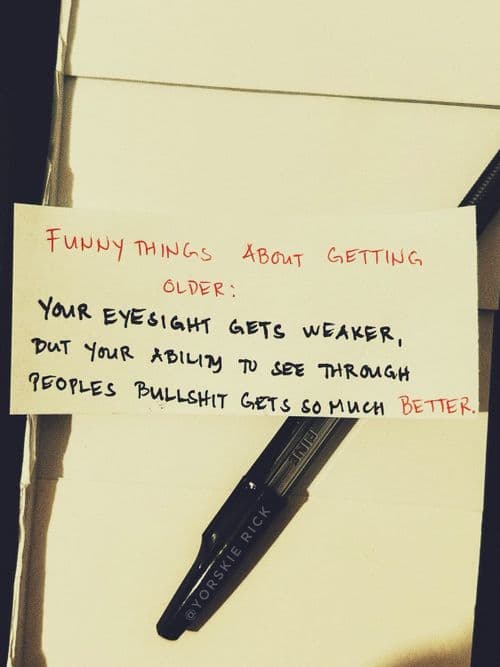 FUNNY THINGS ABOUT GETTING
OLDER:
YOUR EYESIGHT GETS WEAKER,
BUT YOUR ABILITY TO SEE THROUGH
PEOPLES BULLSHIT GETS SO MUCH BETTER.
FINE
@YORSKIE RICK